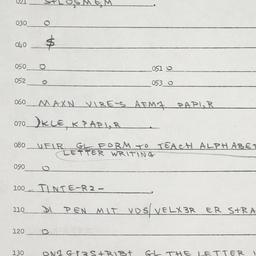 030 O
040 $
050 O 051 O
052 O 053 O
060 MAXN VIRE-S ATMZ PAPI,R
070 KLE, K PAPI,R
080 UFIR GL FORM TO TEACH ALPHABET
LETTER WRITING
090 O
100 TINTE-R2-
110 DI PEN MIT VOS/VELX3R ER S+RA
120 O
130 GL THE LETTER